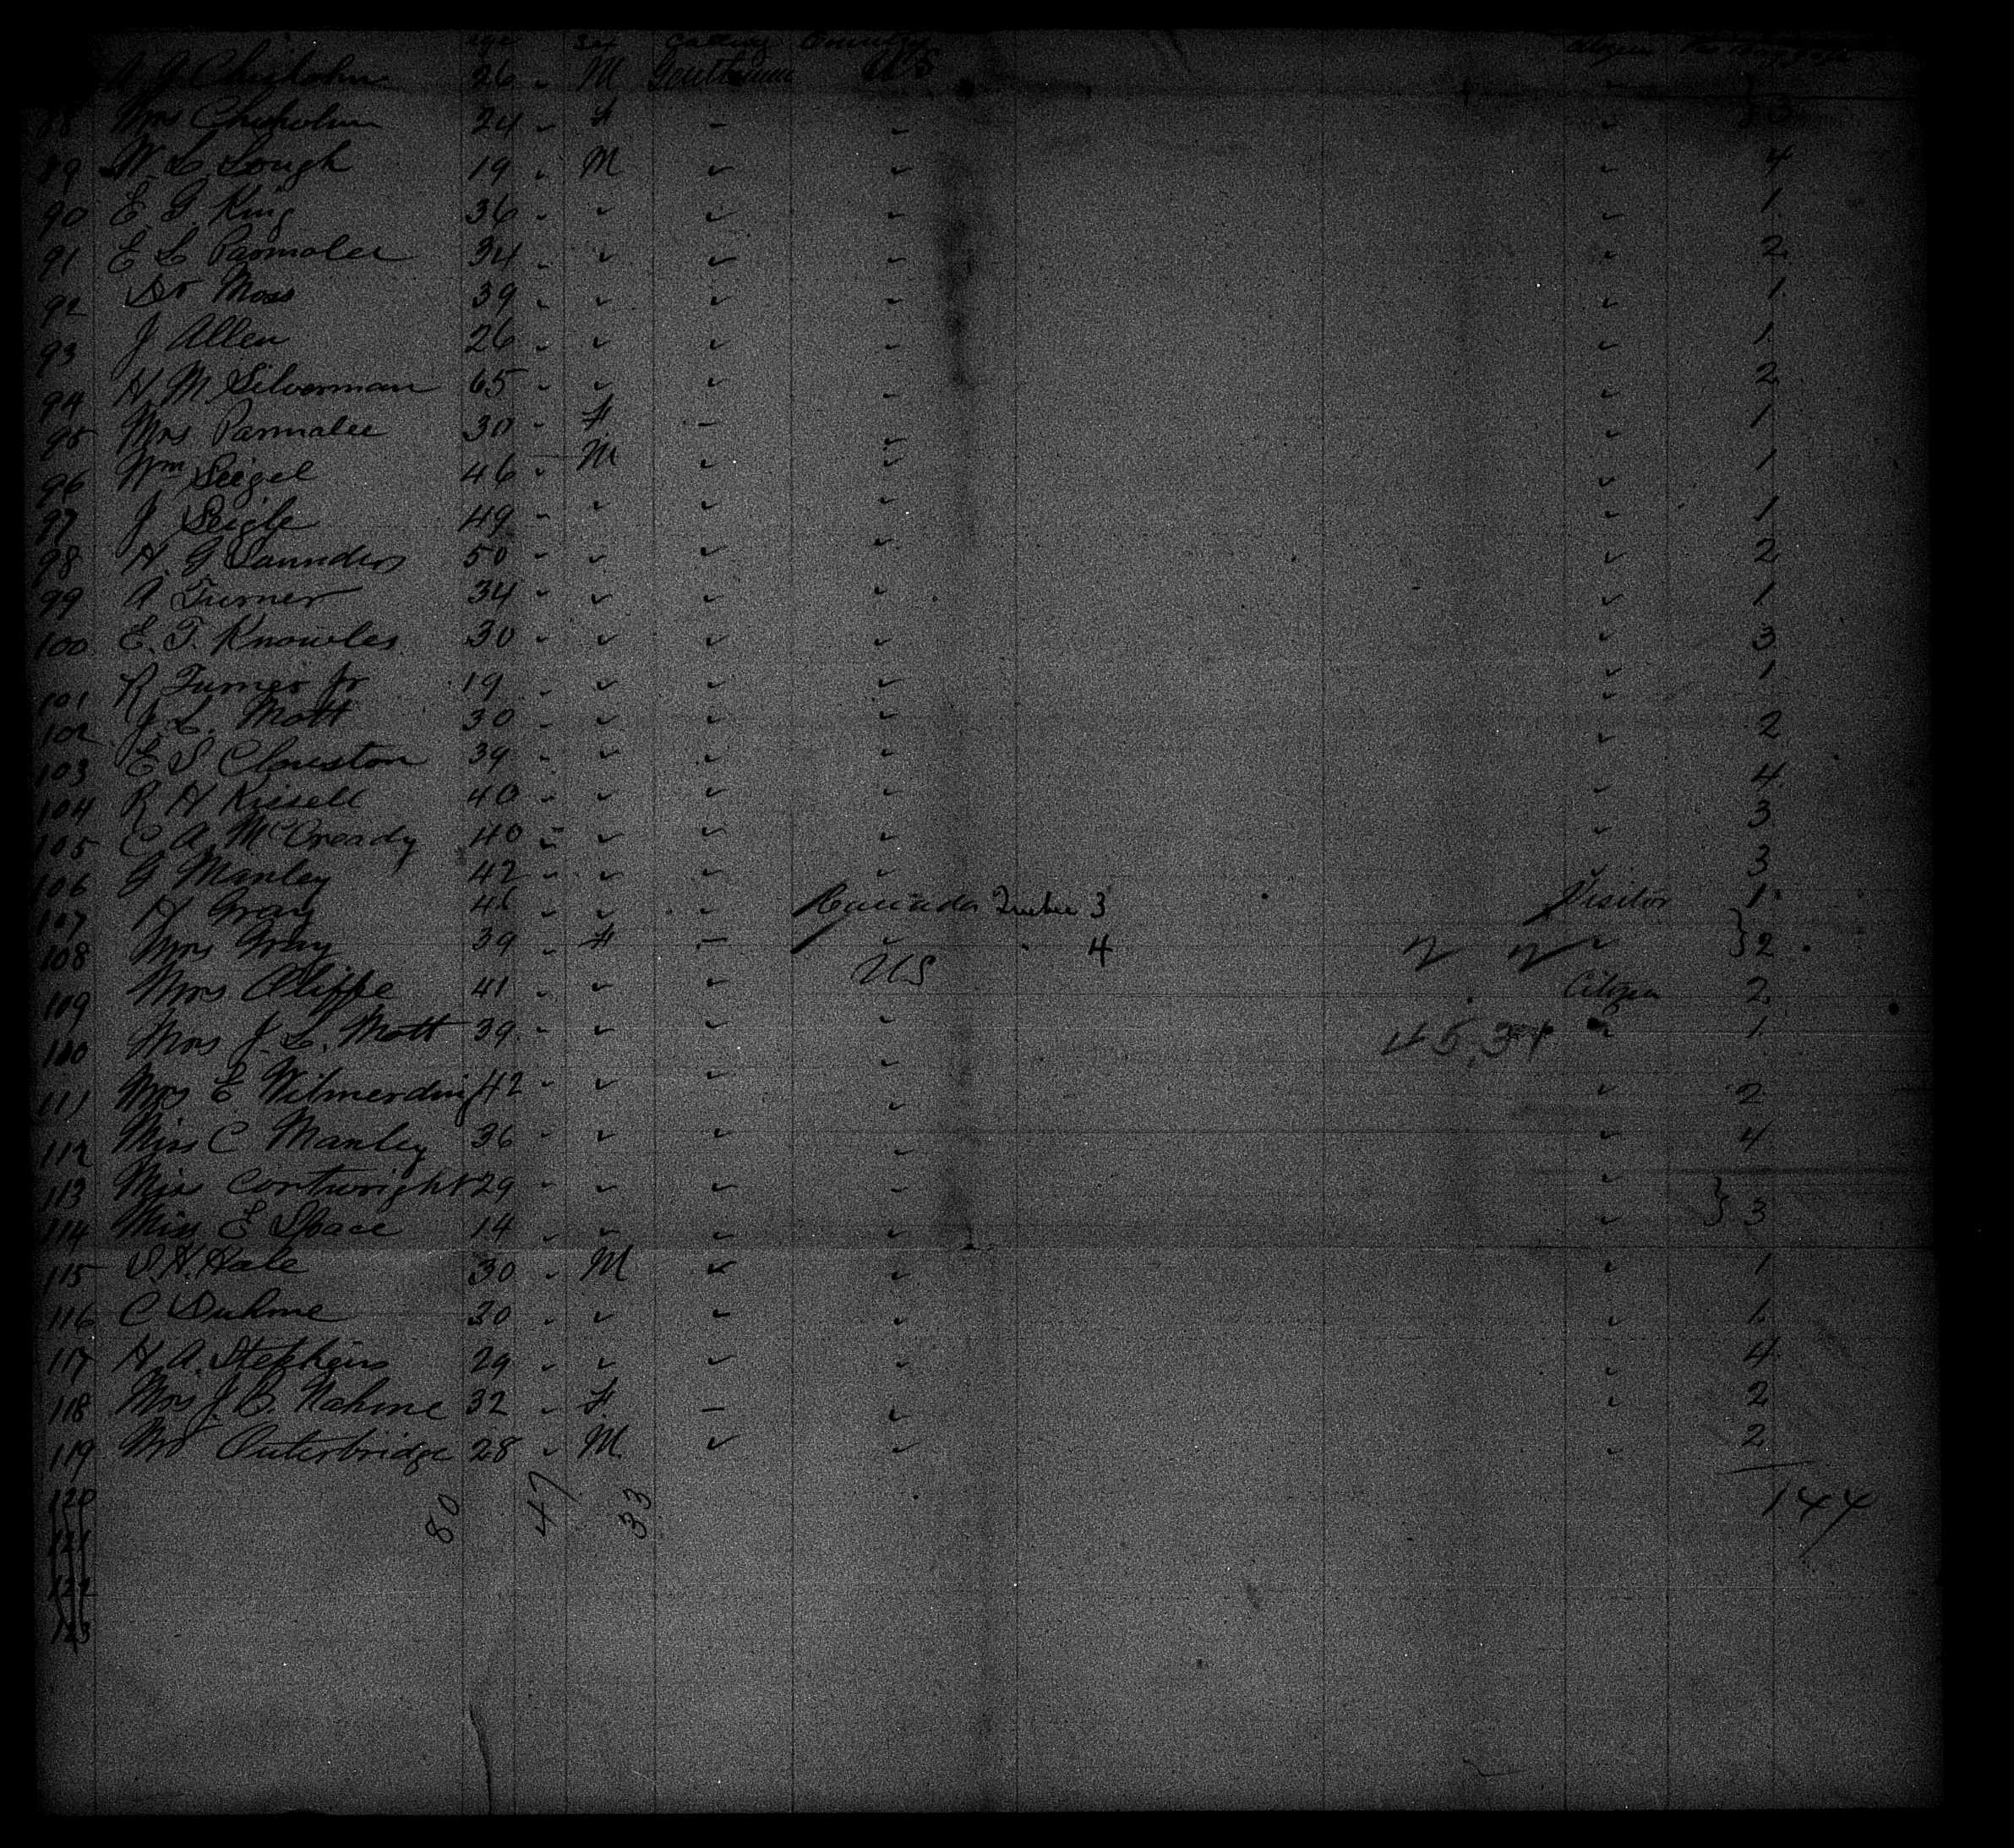 Age Sex Calling Country Citizen
A J Chisholm 26 " M Gentleman US " }
88 Mrs Chisholm 24 " F - " " } 3
89 W. L. Lough 19 " M " " " 4
90 E. G. King 36 " " " " " 1
91 E L Parmalee 34 " " " " " 2
92 Dr Moss 39 " " " " " 1
93 J Allen 26 " " " " " 1
94 H M Silverman 65 " " " " " 2
95 Mrs Parmalee 30 " F - " " 1
96 Wm Seigel 46 " M " " " 1
97 J Seigle 49 " " " " " 1
98 H. G Saunders 50 " " " " " 2
99 A Turner 34 " " " " " 1
100 E. T. Knowles 30 " " " " " 3
101 R Turner Jr 19 " " " " " 1
102 J. L. Mott 30 " " " " " 2
103 E S Clouston 39 " " " " " 4
104 R H Kissell 40 " " " " " 3
105 C A McCready 40 " " " " " 3
106 G Manley 42 " " " " " 1
107 H Gray 46 " " " Canada Quebec 3 Visitor }
108 Mrs Gray 39 " F - " " 4 " } 2
109 Mrs Oliffe 41 " " " US Citizen 2
110 Mrs J. L. Mott 39 " " " " " 1
111 Mrs E Wilmerding 42 " " " " " 2
112 Miss C Manley 36 " " " " " 4
113 Miss Contwright 29 " " " " " }
114 Miss E Space 14 " " " " " } 3
115 S. H. Hale 30 " M " " " 1
116 C Duhme 30 " " " " " 1
117 H. A. Stephens 29 " " " " " 4
118 Mrs J. B. Nahme 32 " F - " " 2
119 Mr Outerbridge 28 " M " " " 2
120 80 47 33 144
121
122
123